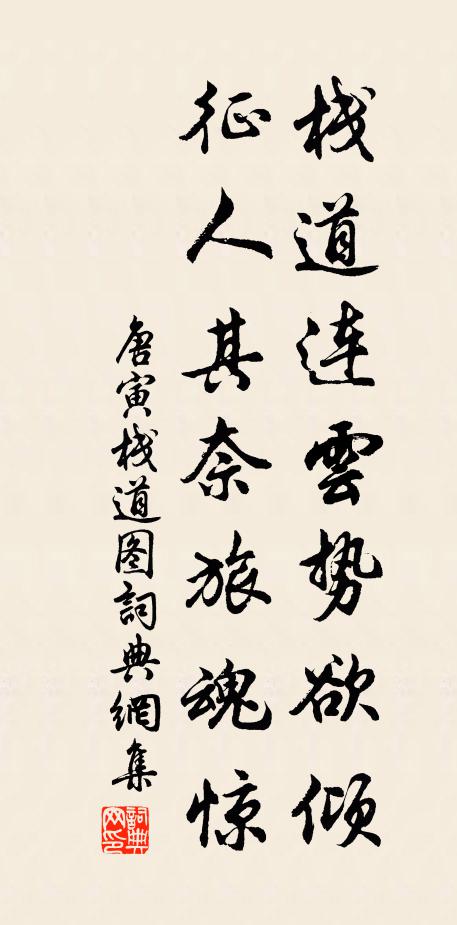 栈道连雲势欲倾
征人其奈旅魂惊
唐寅栈道图詞典網集
詞典网印